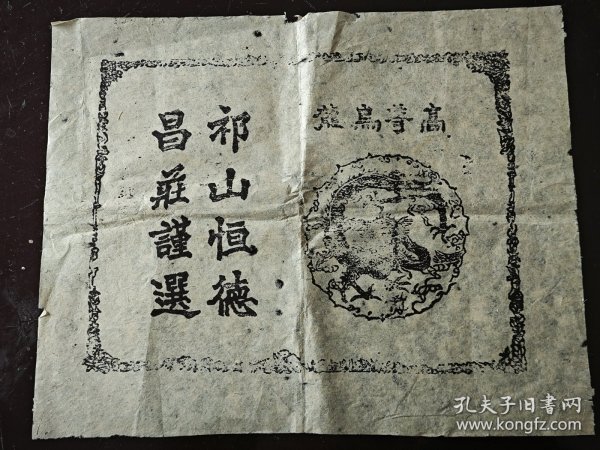 高等烏龍
祁山恒德
昌莊謹選
孔夫子旧書网
www.kongfz.com